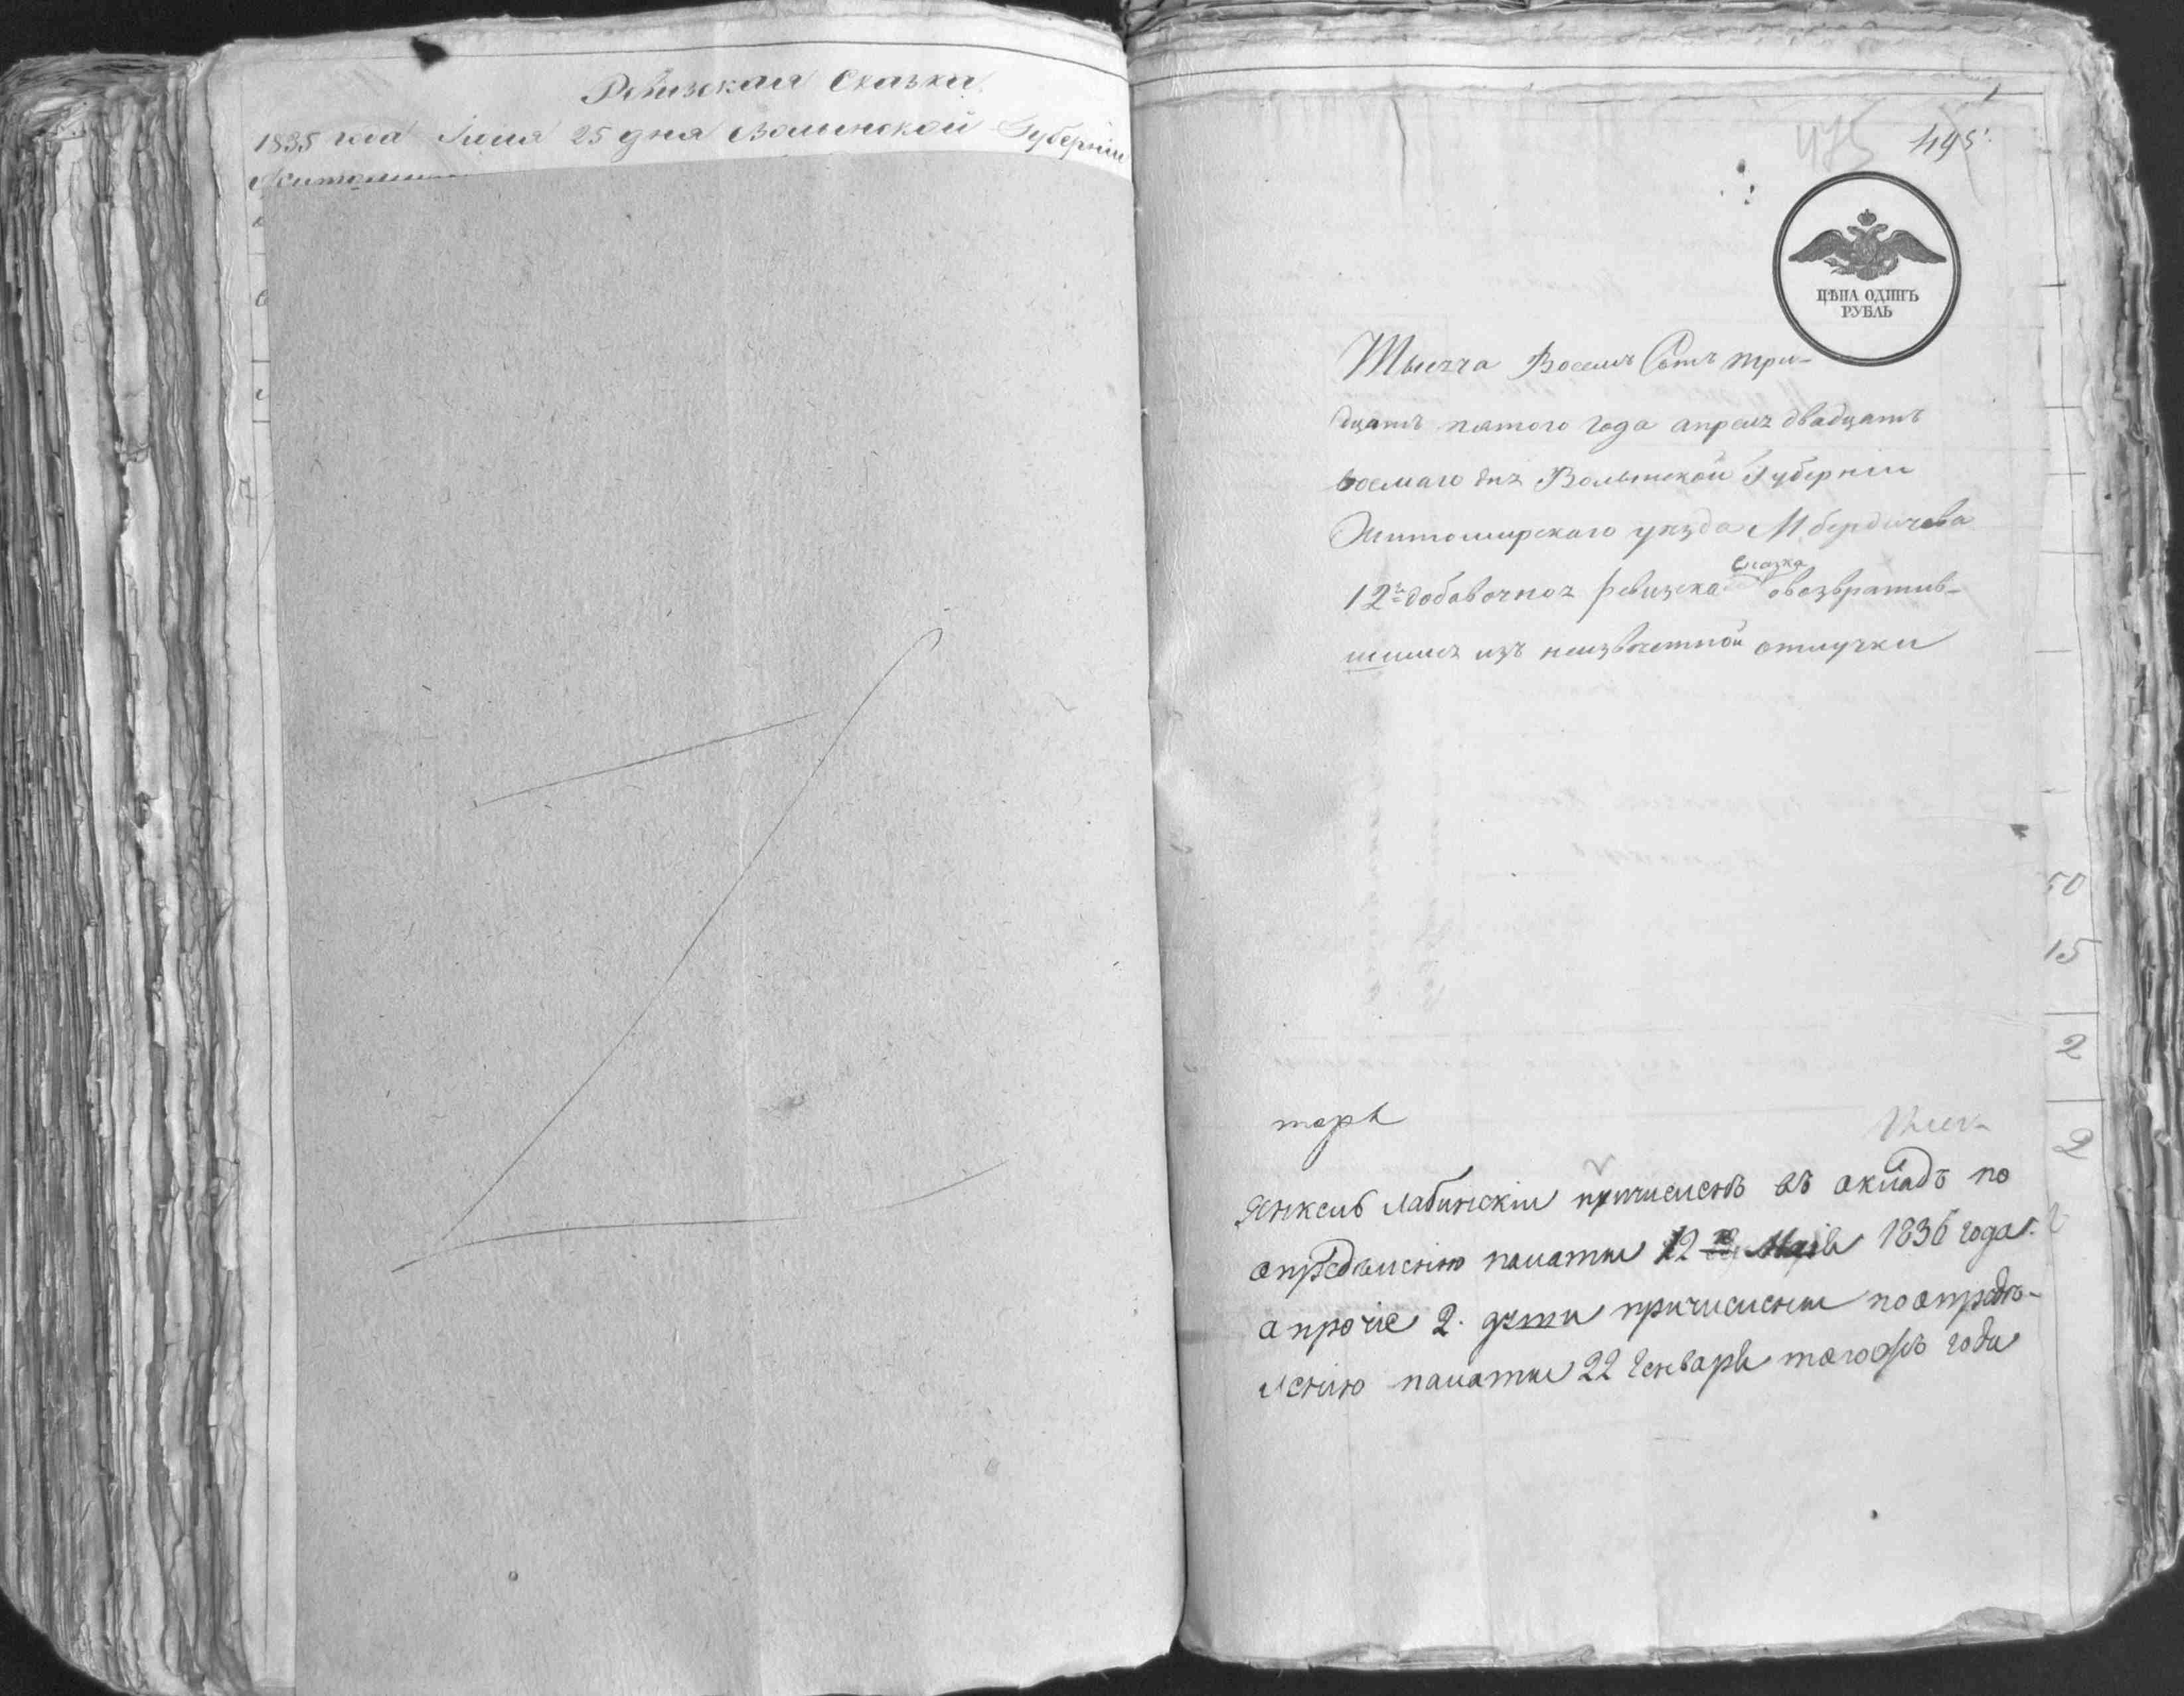 Ревизская Сказка
1835 года Июля 25 дня Волынской Губерніи
495
475
ЦѢНА ОДИНЪ
РУБЛЬ
Тысяча Восемъ Сотъ три-
дцать пятого года апреля двадцать
восмаго дня Волынской Губерніи
Житомирскаго уѣзда М. бердичева
Сказка
12я добавочная ревизска овозвратив-
шимся изъ неизвѣстной отлучки
50
15
2
2
Янкель Лабинскій причисленъ въ окладъ по
опредѣленію палаты 12 1836 года.
а прочіе 2. дѣти причислены по опредѣ-
ленію палаты 22 Генваря тогожъ года